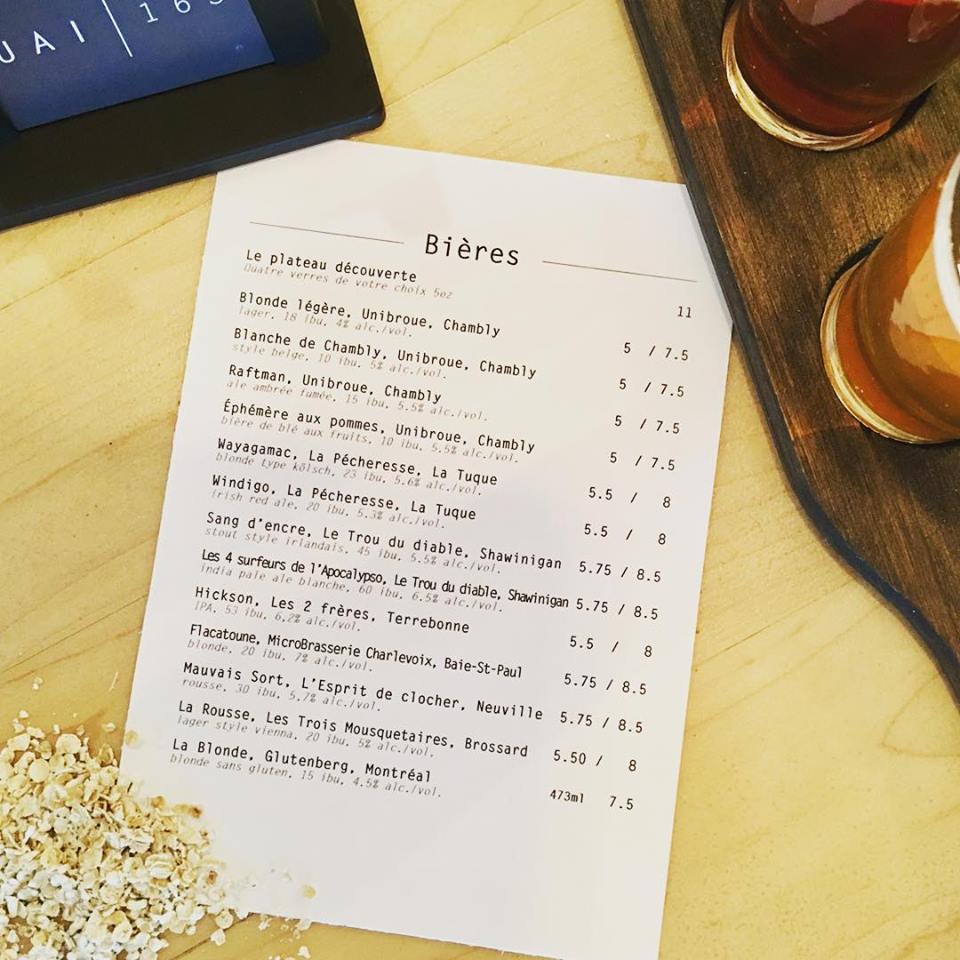 UAI | 165
Bières
Le plateau découverte
Quatre verres de votre choix 5oz 11
Blonde légère, Unibroue, Chambly 5 / 7.5
lager, 18 ibu, 4% alc./vol.
Blanche de Chambly, Unibroue, Chambly 5 / 7.5
style belge, 10 ibu, 5% alc./vol.
Raftman, Unibroue, Chambly 5 / 7.5
ale ambrée fumée, 15 ibu, 5.5% alc./vol.
Éphémère aux pommes, Unibroue, Chambly 5 / 7.5
bière de blé aux fruits, 10 ibu, 5.5% alc./vol.
Wayagamac, La Pécheresse, La Tuque 5.5 / 8
blonde type kölsch, 23 ibu, 5.6% alc./vol.
Windigo, La Pécheresse, La Tuque 5.5 / 8
irish red ale, 20 ibu, 5.3% alc./vol.
Sang d'encre, Le Trou du diable, Shawinigan 5.75 / 8.5
stout style irlandais, 45 ibu, 5.5% alc./vol.
Les 4 surfeurs de l'Apocalypso, Le Trou du diable, Shawinigan 5.75 / 8.5
india pale ale blanche, 60 ibu, 6.5% alc./vol.
Hickson, Les 2 frères, Terrebonne 5.5 / 8
IPA, 53 ibu, 6,2% alc./vol.
Flacatoune, MicroBrasserie Charlevoix, Baie-St-Paul 5.75 / 8.5
blonde, 20 ibu, 7% alc./vol.
Mauvais Sort, L'Esprit de clocher, Neuville 5.75 / 8.5
rousse, 30 ibu, 5,7% alc./vol.
La Rousse, Les Trois Mousquetaires, Brossard 5.50 / 8
lager style vienna, 20 ibu, 5% alc./vol.
La Blonde, Glutenberg, Montréal 473ml 7.5
blonde sans gluten, 15 ibu, 4.5% alc./vol.